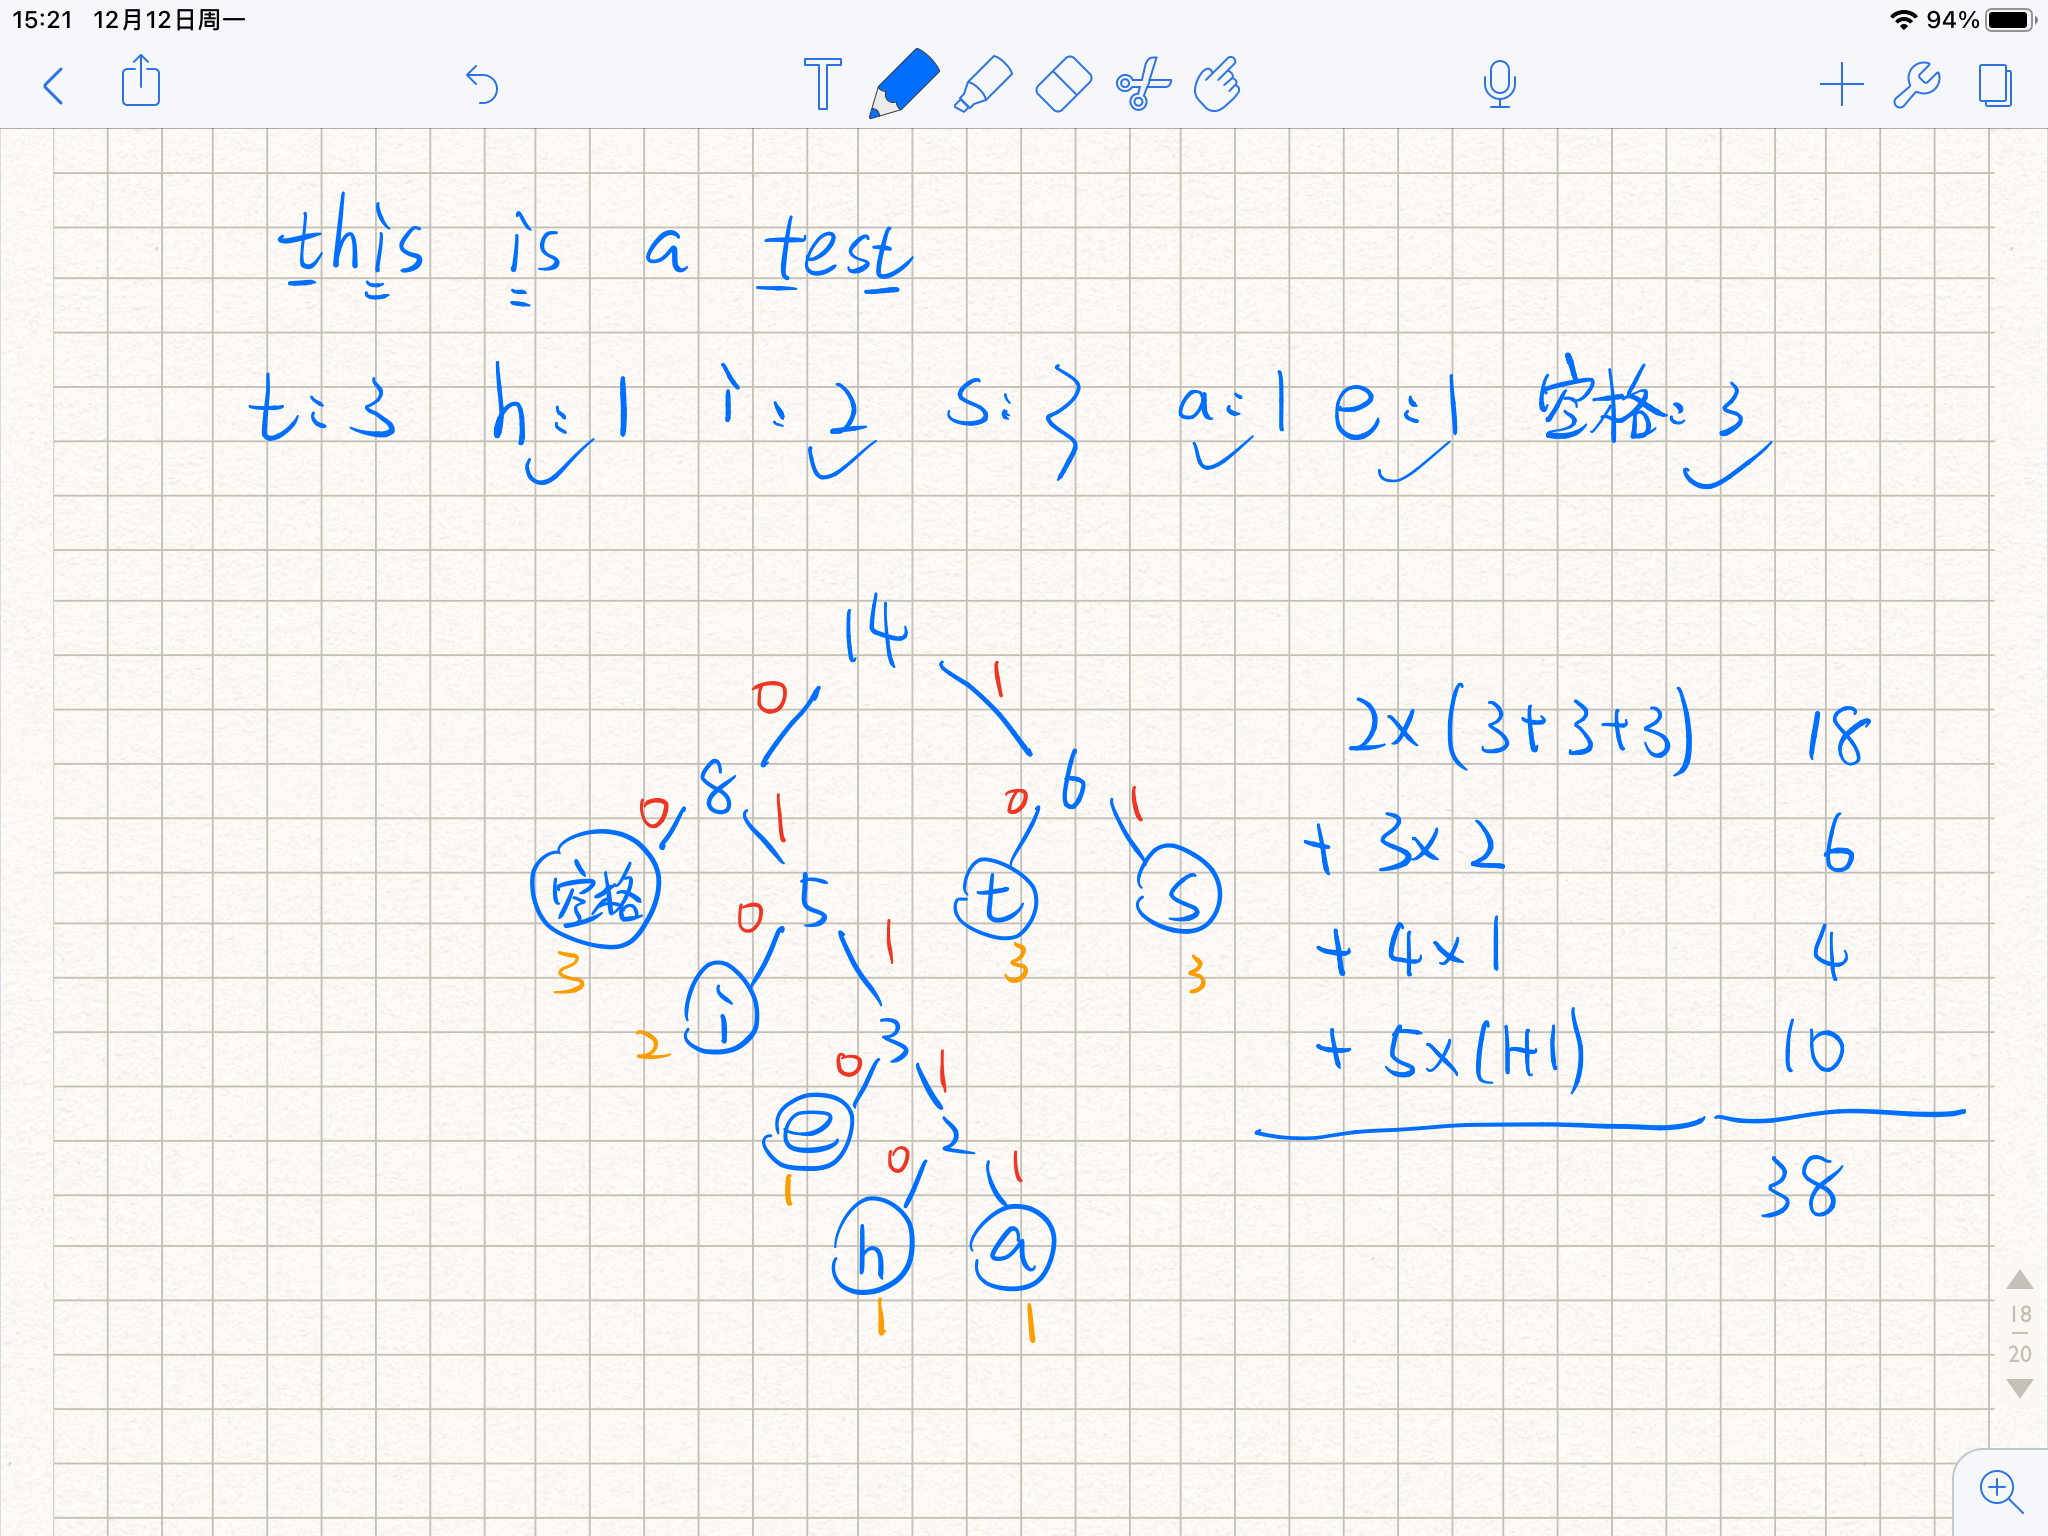 15:21 12月12日周一 94%
T
this is a test
t:3 h:1 i:2 s:3 a:1 e:1 空格:3
14
0 1
8 6
0 1 0 1
空格 5 t s
3 0 1 3 3
i 3
2 0 1
e 2
1 0 1
h a
1 1
2×(3+3+3) 18
+ 3×2 6
+ 4×1 4
+ 5×(1+1) 10
38
18
20